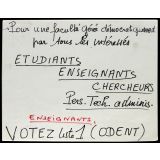 Pour une faculté gérée démocratiquement
par tous les intéressés
ETUDIANTS
ENSEIGNANTS
CHERCHEURS
Pers. Tech. adminis.
ENSEIGNANTS,
VOTEZ liste 1 (ODENT)